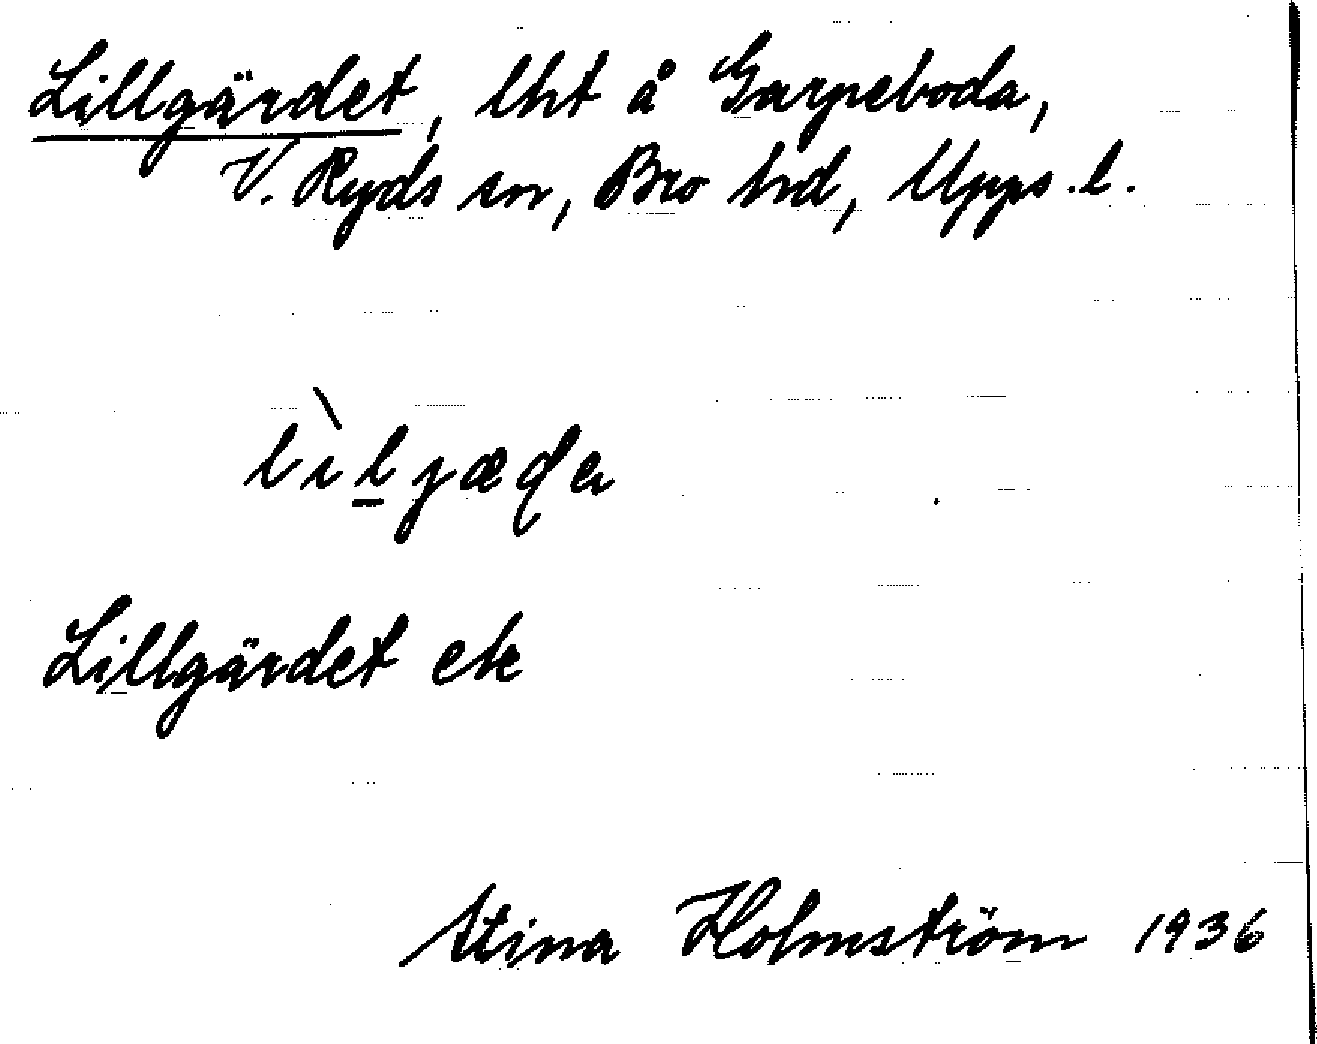 Lillgärdet, lht å Garpeboda,
V. Ryds sn, Bro hrd, Upps. l.
Lillgärdet ek
Stina Holmström 1936